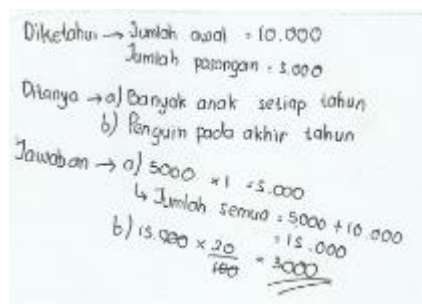 Diketahui → Jumlah awal = 10.000
Jumlah pasangan = 5.000
Ditanya → a) Banyak anak setiap tahun
b) Penguin pada akhir tahun
Jawaban → a) 5000 × 1 = 5.000
↳ Jumlah semua = 5000 + 10.000
= 15.000
b) 15.000 × 20/100 = 3000